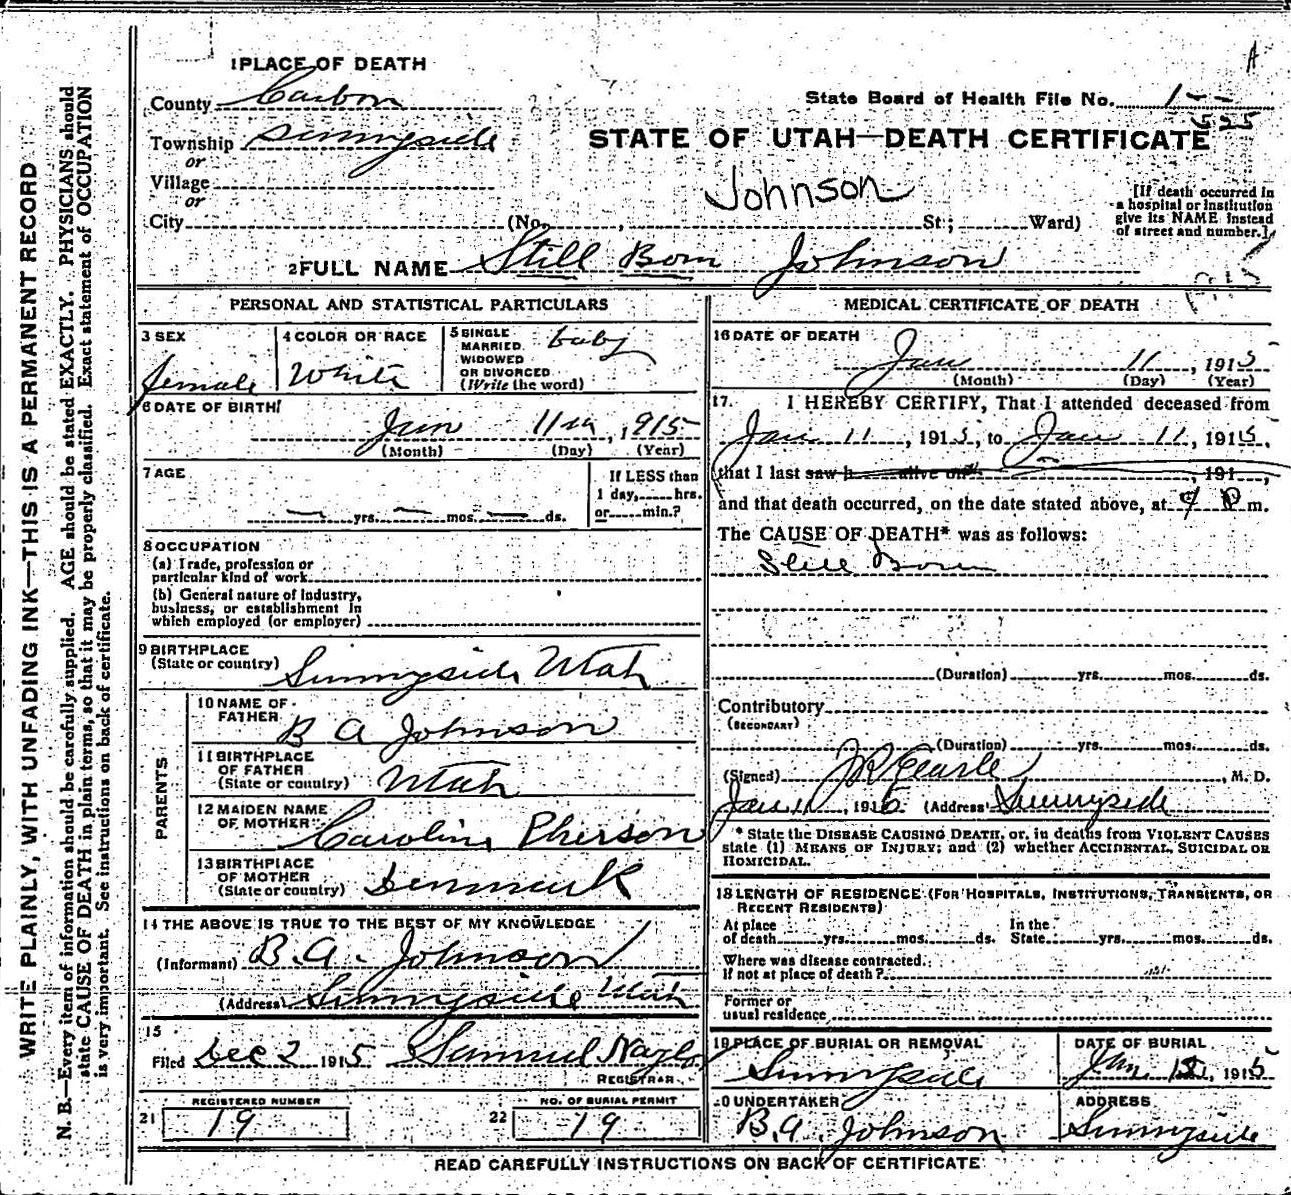 1 PLACE OF DEATH
County Carbon
State Board of Health File No.
Township Sunnyside
or
STATE OF UTAH—DEATH CERTIFICATE
Village
or
Johnson
City (No. , St; Ward)
[If death occurred in
a hospital or institution
give its NAME instead
of street and number.]
2 FULL NAME Still Born Johnson
PERSONAL AND STATISTICAL PARTICULARS
3 SEX
female
4 COLOR OR RACE
White
5 SINGLE
MARRIED
WIDOWED
OR DIVORCED
(Write the word)
baby
6 DATE OF BIRTH
Jan 11th, 1915
(Month) (Day) (Year)
7 AGE
— yrs. — mos. — ds.
If LESS than
1 day, hrs.
or min.?
8 OCCUPATION
(a) Trade, profession or
particular kind of work
(b) General nature of industry,
business, or establishment in
which employed (or employer)
9 BIRTHPLACE
(State or country) Sunnyside Utah
PARENTS
10 NAME OF
FATHER B A Johnson
11 BIRTHPLACE
OF FATHER
(State or country) Utah
12 MAIDEN NAME
OF MOTHER Caroline Pherson
13 BIRTHPLACE
OF MOTHER
(State or country) Denmark
14 THE ABOVE IS TRUE TO THE BEST OF MY KNOWLEDGE
(Informant) B. A. Johnson
(Address) Sunnyside Utah
15
Filed Dec 2 1915 Samuel Naylor
REGISTRAR
21 REGISTERED NUMBER
19
22 NO. OF BURIAL PERMIT
19
MEDICAL CERTIFICATE OF DEATH
16 DATE OF DEATH
Jan 11, 1915
(Month) (Day) (Year)
17. I HEREBY CERTIFY, That I attended deceased from
Jan 11, 1915, to Jan 11, 1915,
that I last saw h alive on , 191 ,
and that death occurred, on the date stated above, at 9 P m.
The CAUSE OF DEATH* was as follows:
Still Born
(Duration) yrs. mos. ds.
Contributory
(SECONDARY)
(Duration) yrs. mos. ds.
(Signed) , M. D.
Jan 11, 1915 (Address) Sunnyside
* State the DISEASE CAUSING DEATH, or, in deaths from VIOLENT CAUSES
state (1) MEANS OF INJURY; and (2) whether ACCIDENTAL, SUICIDAL OR
HOMICIDAL.
18 LENGTH OF RESIDENCE (FOR HOSPITALS, INSTITUTIONS, TRANSIENTS, OR
RECENT RESIDENTS)
At place In the
of death yrs. mos. ds. State yrs. mos. ds.
Where was disease contracted,
if not at place of death?
Former or
usual residence
19 PLACE OF BURIAL OR REMOVAL
Sunnyside
DATE OF BURIAL
Jan. 12, 1915
20 UNDERTAKER
B. A. Johnson
ADDRESS
Sunnyside
READ CAREFULLY INSTRUCTIONS ON BACK OF CERTIFICATE
WRITE PLAINLY, WITH UNFADING INK—THIS IS A PERMANENT RECORD
N. B.—Every item of information should be carefully supplied. AGE should be stated EXACTLY. PHYSICIANS should
state CAUSE OF DEATH in plain terms, so that it may be properly classified. Exact statement of OCCUPATION
is very important. See instructions on back of certificate.